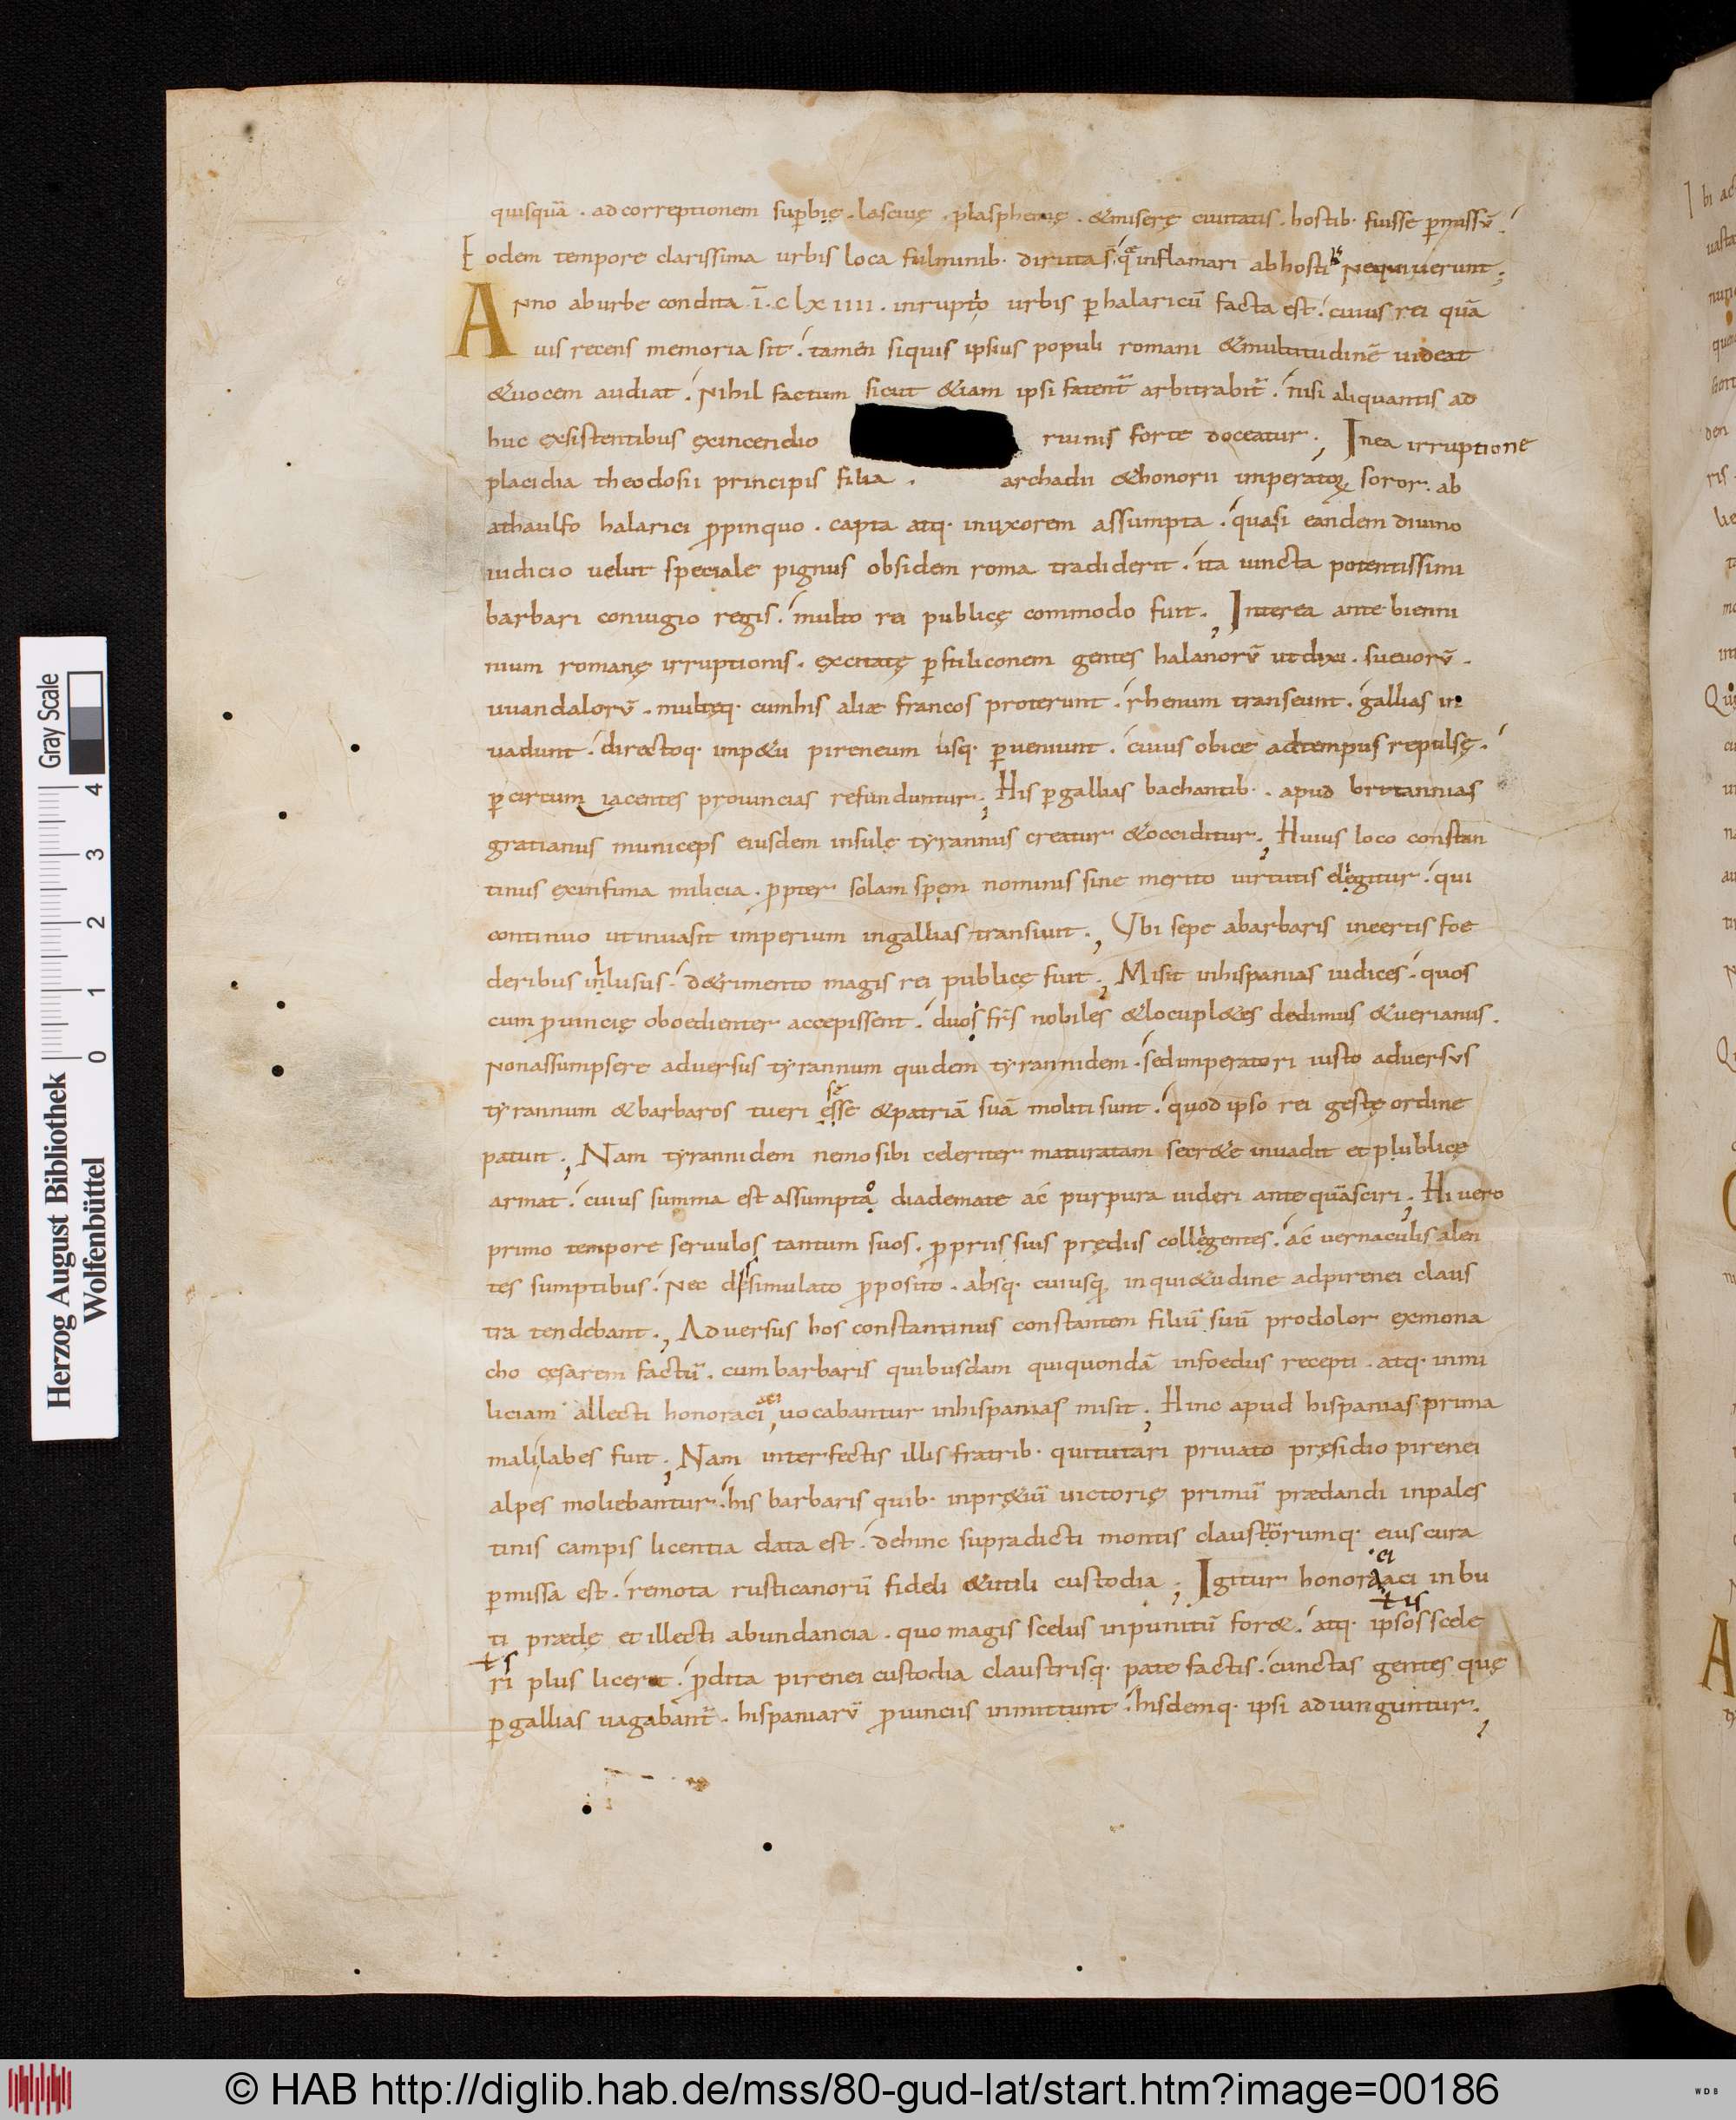 quisquā . ad correptionem sup̄bię . lasciuę . plasphemię . &miserę ciuitatis . hostib· fuisse p̄missū .
Eodem tempore clarissima urbis loca fulminib· diruta s̄ . quę inflamari ab hostib; nequiuerunt ;
Anno ab urbe condita ī . clxiiii . inruptio urbis p̄ halaricū facta est . cuius rei quā
uis recens memoria sit . tamen siquis ipsius populi romani &multitudinē uideat
&uocem audiat . Nihil factum sicut &iam ipsi fatent̄ arbitrabit̄ . nisi aliquantis ad
huc exsistentibus exincendio ruinis forte doceatur ; Inea irruptione
placidia theodosii principis filia . archadii &honorii imperatoꝝ soror . ab
athaulfo halarici p̄pinquo . capta atq· inuxorem assumpta . quasi eandem diuino
iudicio uelut speciale pignus obsidem roma tradiderit . ita iuncta potentissimi
barbari coniugio regis . multo rei publicę commodo fuit ; Interea ante bienni
nium romanę irruptionis . excitatę p̄ stiliconem gentes halanorū ut dixi . sueuorū .
uuandalorū . multęq· cumhis aliæ francos proterunt . rhenum transeunt . gallias in
uadunt . directoq· imp&u pireneum usq· p̄ueniunt . cuius obice adtempus repulsę .
p̄ circum iacentes prouincias refunduntur ; His p̄ gallias bachantib· . apud brittannias
gratianus municeps eiusdem insulę tyrannus creatur &occiditur ; Huius loco constan
tinus exinfima milicia . p̄pter solam spem nominis sine merito uirtutis elęgitur . qui
continuo ut inuasit imperium ingallias transiuit ; Vbi sepe abarbaris incertis foe
deribus inlusus . d&rimento magis rei publicę fuit ; Misit inhispanias iudices . quos
cum p̄uincię oboedienter accepissent . duos fr̄s nobiles &locupl&es dedimus &uerianus .
Nonassumpsere aduersus tyrannum quidem tyrannidem . sed imperatori iusto aduersus
tyrannum &barbaros tueri sé esse &patriā suā moliti sunt . quod ipso rei gestę ordine
patuit ; Nam tyrannidem nemo sibi celeriter maturatam secr&e inuadit et plublicę
armat . cuius summa est assumpta diademate ac purpura uideri ante quā sciri ; Hi uero
primo tempore seruulos tantum suos . p̄priis suis prędiis collęgentes . ac vernaculis alen
tes sumptibus . Nec dissimulato p̄posito . absq· cuiusq· inqui&udine adpirenei claus
tra tendebant ; Aduersus hos constantinus constantem filiū suū prodolor exmona
cho cęsarem factū . cum barbaris quibusdam quiquondā infoedus recepti . atq· inmi
liciam allecti honoraci uocabantur inhispanias misit ; Hinc apud hispanias prima
mali labes fuit ; Nam interfectis illis fratrib· quitutari priuato pręsidio pirenei
alpes moliebantur . his barbaris quib· inprę&iū uictorię primū prædandi inpales
tinis campis licentia data est . dehinc supradicti montis claustrorumq· eius cura
p̄missa est . remota rusticanorū fideli &utili custodia ; Igitur honoraci inbu
ti prædę et illecti abundancia . quo magis scelus inpunitū for& . atq· ipsos scele
ri plus liceret . p̄dita pirenei custodia claustrisq· pate factis . cunctas gentes quę
p̄ gallias uagabant̄ . hispaniarū p̄uinciis inmittunt . hisdemq· ipsi adiunguntur ;
Gray Scale
0 1 2 3 4
Herzog August Bibliothek
Wolfenbüttel
© HAB http://diglib.hab.de/mss/80-gud-lat/start.htm?image=00186
WDB